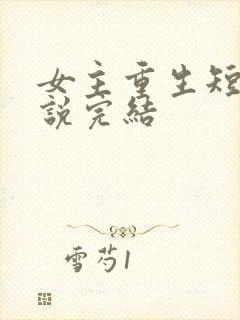 女主重生短
說完結
雪芍1